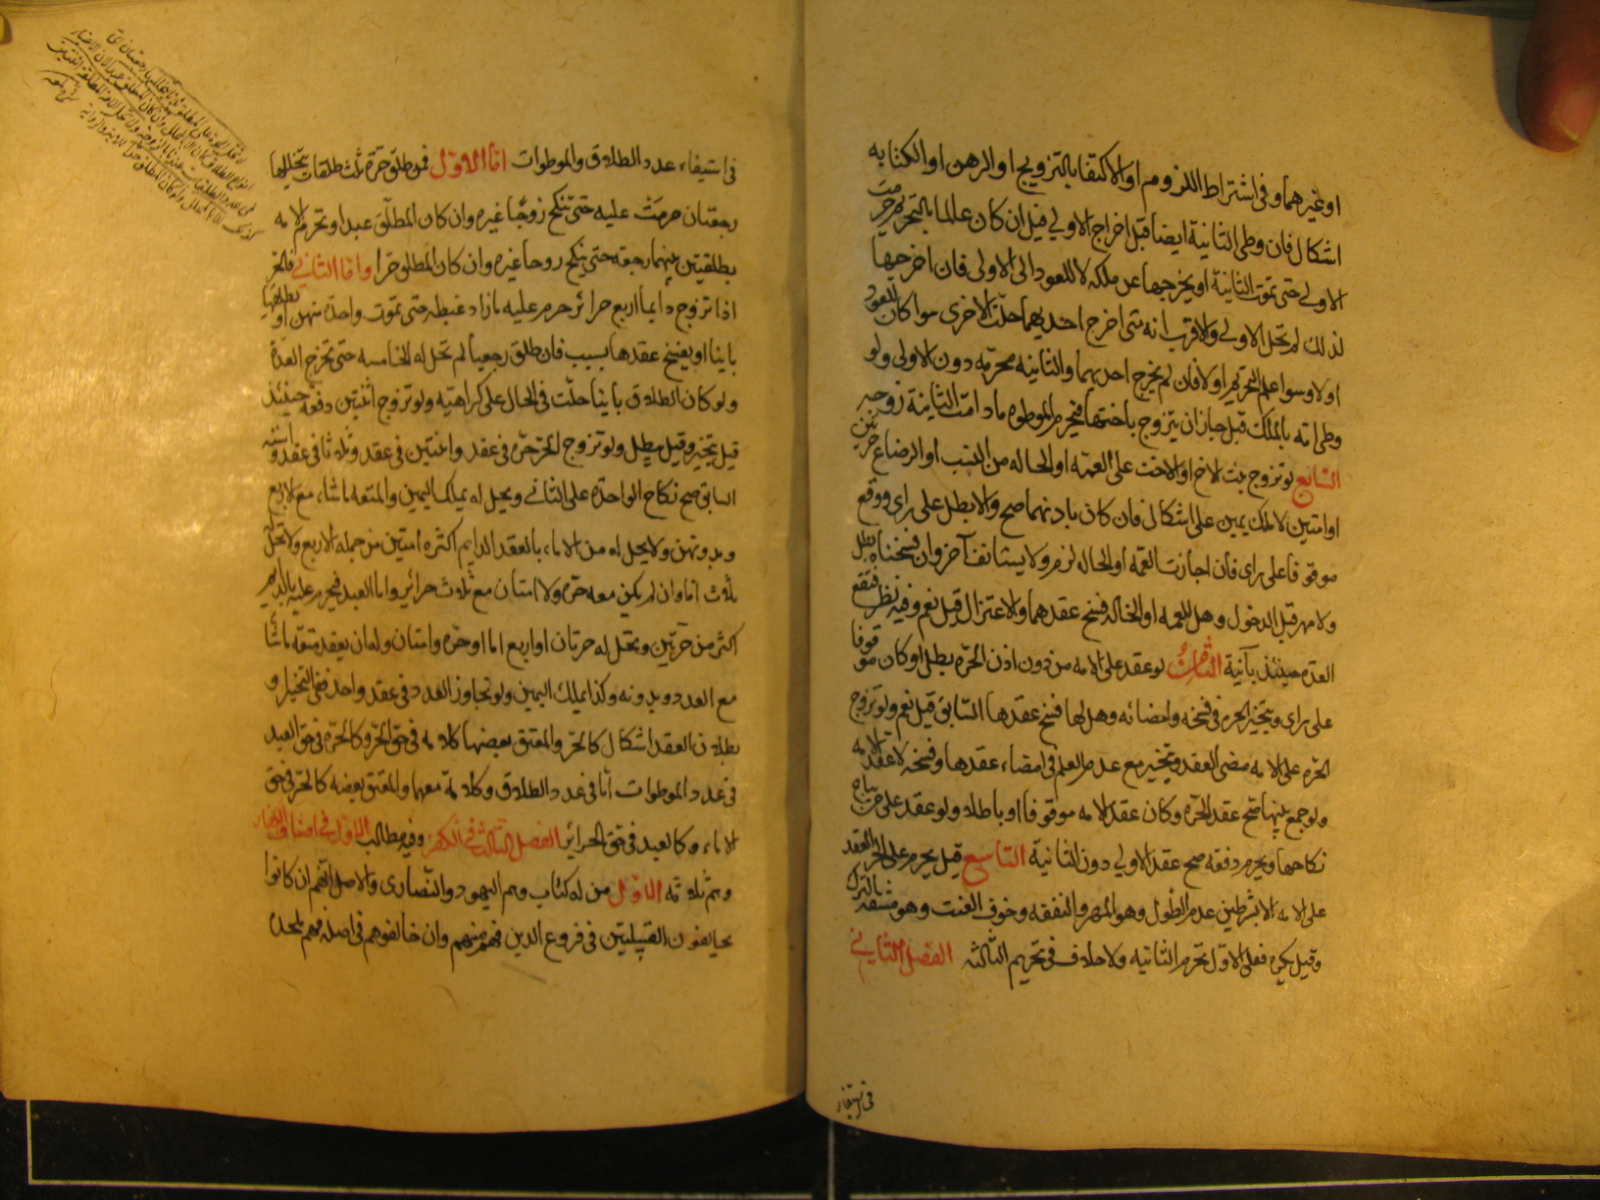 او غيرهما وفى اشتراط اللزوم او الاكتفا بالتزويج او الرهن او الكتابه
اشكال فان وطى الثانية ايضا قبل اخراج الاولي قيل ان كان عالما بالتحريم حرمت
الاولي حتى تموت الثانية او يخرجها عن ملكه لا للعود الى الاولى فان اخرجها
لذلك لم تحل الاولي والاقرب انه متى اخرج احديهما حلت الاخرى سوا كان للعود
او لا وسوا علم التحريم او لا فان لم يخرج احديهما والثانيه محرمه دون الاولى ولو
وطى امته بالملك قيل جاز ان يتزوج باختها فيحرم الموطوه ما دامت الثانية زوجه
السابع لو تزوج بنت الاخ او الاخت على العمه او الخاله من النسب او الرضاع حرتين
او امتين لا ملك يمين على اشكال فان كان باذنهما صح والا بطل على راى ووقع
موقوفا على راى فان اجازت العمه او الخاله لزم ولا يستانف آخر وان فسختاه بطل
ولا مهر قبل الدخول وهل للعمه او الخاله فسخ عقدهما والاعتزال قيل نعم وفيه نظر فتقع
العده حينئذ بآنية الثامن لو عقد على الامه من دون اذن الحره بطل او كان موقوفا
على راى ويتخير الحره فى فسخه وامضائه وهل لها فسخ عقدها السابق قيل نعم ولو تزوج
الحره على الامه مضى العقد ويتخير مع عدم العلم فى امضاء عقدها وفسخه لا عقد الامه
ولو جمع بينهما صح عقد الحره وكان عقد الامه موقوفا او باطلا ولو عقد على من يباح
نكاحها ويحرم دفعه صح عقد الاولي دون الثانية التاسع قيل يحرم على الحر العقد
على الامه الا بشرطين عدم الطول وهو المهر والنفقه وخوف العنت وهو مشقه الترك
وقيل يكره فعلى الاول تحرم الثانيه ولا خلاف فى تحريم الثالثه الفصل الثاني
فى استيفاء
فى استيفاء عدد الطلاق والموطوات اما الاول فمن طلق حرة ثلث طلقات يتخللها
رجعتان حرمت عليه حتى تنكح زوجا غيره وان كان المطلق عبدا وتحرم الامه
بطلقتين بينهما رجعه حتى ينكح زوجا غيره وان كان المطلق حرا واما الثاني فالحر
اذا تزوج دايما اربع حرائر حرم عليه ما زاد غبطه حتى تموت واحدة منهن او يطلقها
باينا او يفسخ عقدها بسبب فان طلق رجعيا لم تحل له الخامسه حتى تخرج العدة
ولو كان الطلاق باينا حلت فى الحال على كراهيه ولو تزوج اثنتين دفعه حينئذ
قيل يتخير وقيل يبطل ولو تزوج الحر حره فى عقد واثنتين فى عقد وثلاثا فى عقد واشتبه
السابق صح نكاح الواحده على الثاني ويحل له بملك اليمين والمتعه ما شاء مع الاربع
وبدونهن ولا يحل له من الاماء بالعقد الدايم اكثر من امتين من جمله الاربع ولا تحل له
ثلاث اما وان لم يكن معه حره ولا امتان مع ثلاث حرائر واما العبد فيحرم عليه بالدايم
اكثر من حرتين ويحل له حرتان او اربع اما او حره وامتان وله ان يعقد متعه ما شا
مع العدد وبدونه وكذا بملك اليمين ولو تجاوز العدد فى عقد واحد ففى التخيير او
بطلان العقد اشكال كالحر والمعتق بعضها كالامه فى حق الحر وكالحره فى حق العبد
فى عدد الموطوات اما فى عدد الطلاق وكالامة معهما والمعتق بعضه كالحر فى حق
الاماء وكالعبد فى حق الحرائر الفصل الثالث فى الكفر وفيه مطالب الاول فى اصناف الكفار
وهم ثلاثه الاول من له كتاب وهم اليهود والنصارى والاصل انهم ان كانوا
يخالفون القبيلتين فى فروع الدين فهم منهم وان خالفوهم فى اصله فهم ملحده